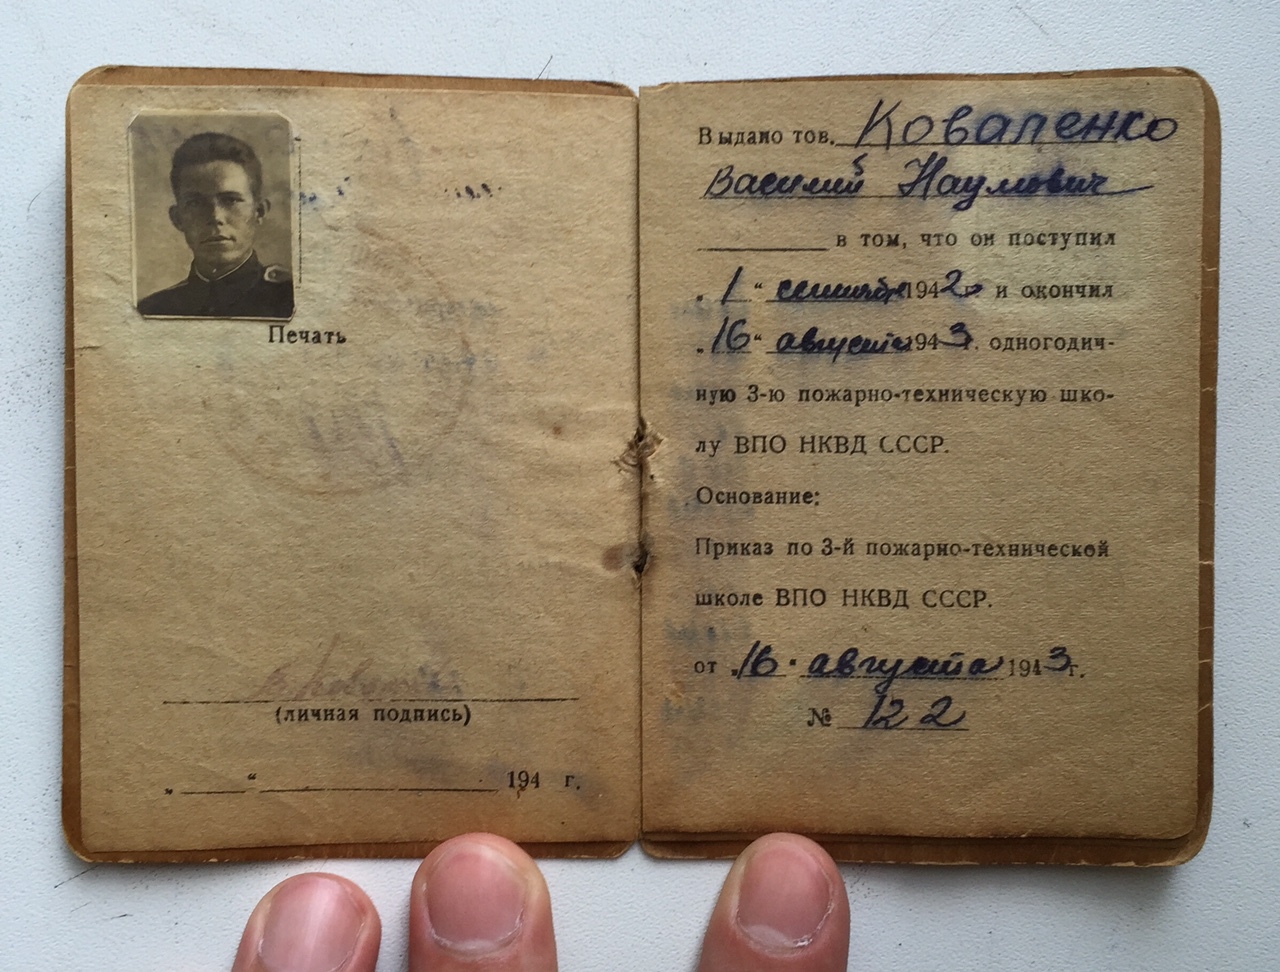 Печать
(личная подпись)
„ “ 194 г.
Выдано тов. Коваленко
Василий Наумович
в том, что он поступил
„1“ сентября 1942 г. и окончил
„16“ августа 1943 г. одногодич-
ную 3-ю пожарно-техническую шко-
лу ВПО НКВД СССР.
Основание:
Приказ по 3-й пожарно-технической
школе ВПО НКВД СССР.
от „16“ августа 1943 г.
№ 122